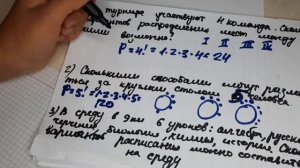 турнире участвуют 4 команда. Ско
распределения мест между
возможно?
I II III IV
P=4!=1·2·3·4=24
2) Сколькими способами могут разме
за круглым столом 5
P=5!=1·2·3·4·5=
120
3) В среду в 9 кл 6 уроков: алгебра, русск
биология, химия, история. Ск
вариантов расписания можно состав
на среду